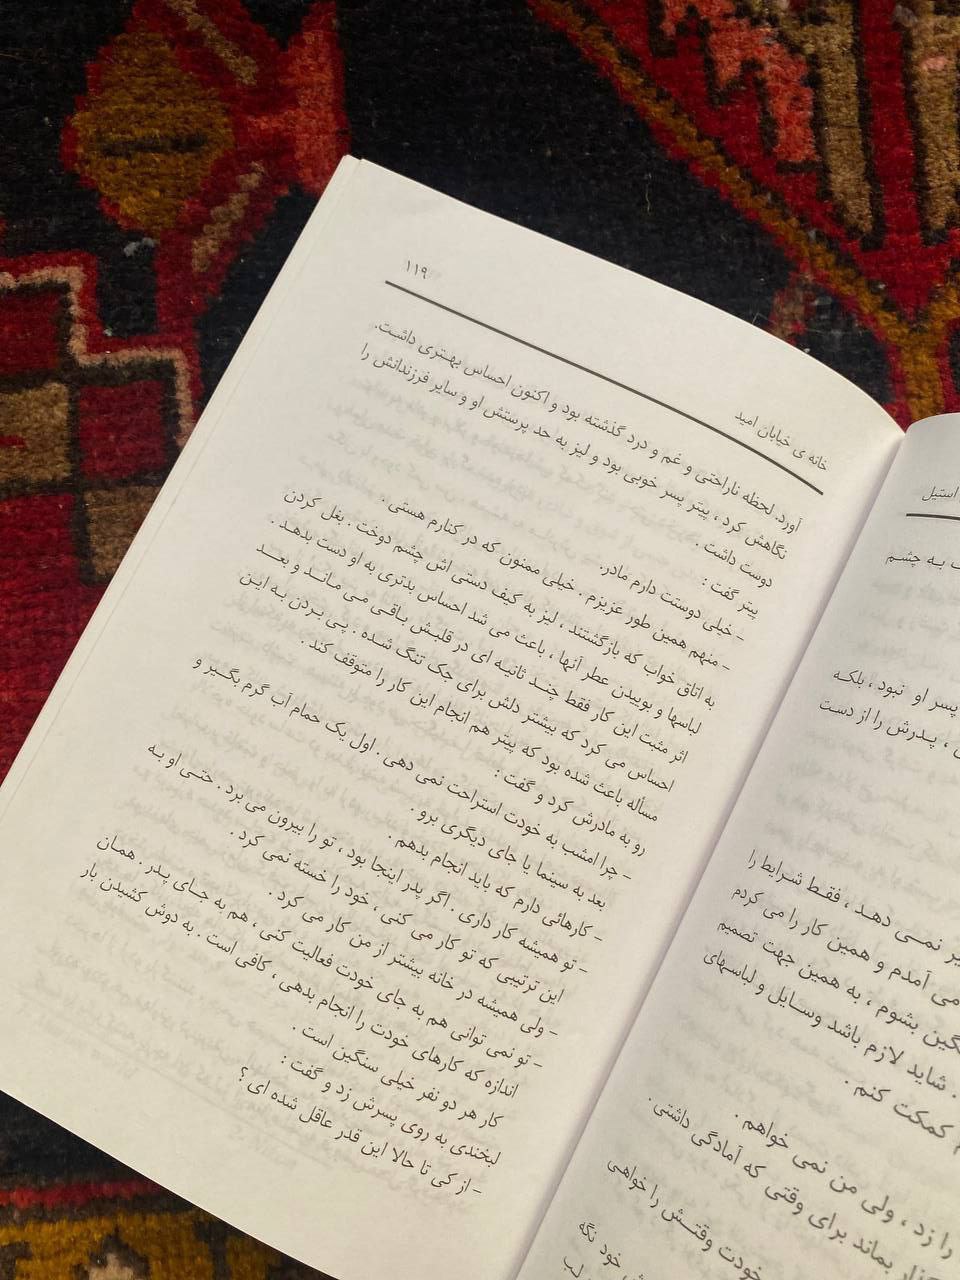 استیل
به چشم
پسر او نبود ، بلکه
، پدرش را از دست
نمی دهد ، فقط شرایط را
می آمدم و همین کار را می کردم
بشوم ، به همین جهت تصمیم
. شاید لازم باشد وسایل و لباسهای
کمکت کنم .
را زد ، ولی من نمی خواهم .
بماند برای وقتی که آمادگی داشتی .
خودت وقتش را خواهی
خود نگه
لب
خانه ی خیابان امید
۱۱۹
آورد. لحظه ناراحتی و غم و درد گذشته بود و اکنون احساس بهتری داشت.
نگاهش کرد ، پیتر پسر خوبی بود و لیز به حد پرستش او و سایر فرزندانش را
دوست داشت .
پیتر گفت :
- خیلی دوستت دارم مادر.
- منهم همین طور عزیزم . خیلی ممنون که در کنارم هستی .
به اتاق خواب که بازگشتند ، لیز به کیف دستی اش چشم دوخت . بغل کردن
لباسها و بوییدن عطر آنها ، باعث می شد احساس بدتری به او دست بدهد .
اثر مثبت این کار فقط چند ثانیه ای در قلبش باقی می ماند و بعد
احساس می کرد که بیشتر دلش برای جک تنگ شده . پی بردن به این
مسأله باعث شده بود که پیتر هم انجام این کار را متوقف کند .
رو به مادرش کرد و گفت :
- چرا امشب به خودت استراحت نمی دهی . اول یک حمام آب گرم بگیر و
بعد به سینما یا جای دیگری برو .
- کارهائی دارم که باید انجام بدهم .
- تو همیشه کار داری . اگر پدر اینجا بود ، تو را بیرون می برد . حتی او به
این ترتیبی که تو کار می کنی ، خود را خسته نمی کرد .
- ولی همیشه در خانه بیشتر از من کار می کرد .
- تو نمی توانی هم به جای خودت فعالیت کنی ، هم به جای پدر . همان
اندازه که کارهای خودت را انجام بدهی ، کافی است . به دوش کشیدن بار
کار هر دو نفر خیلی سنگین است .
لبخندی به روی پسرش زد و گفت :
- از کی تا حالا این قدر عاقل شده ای ؟